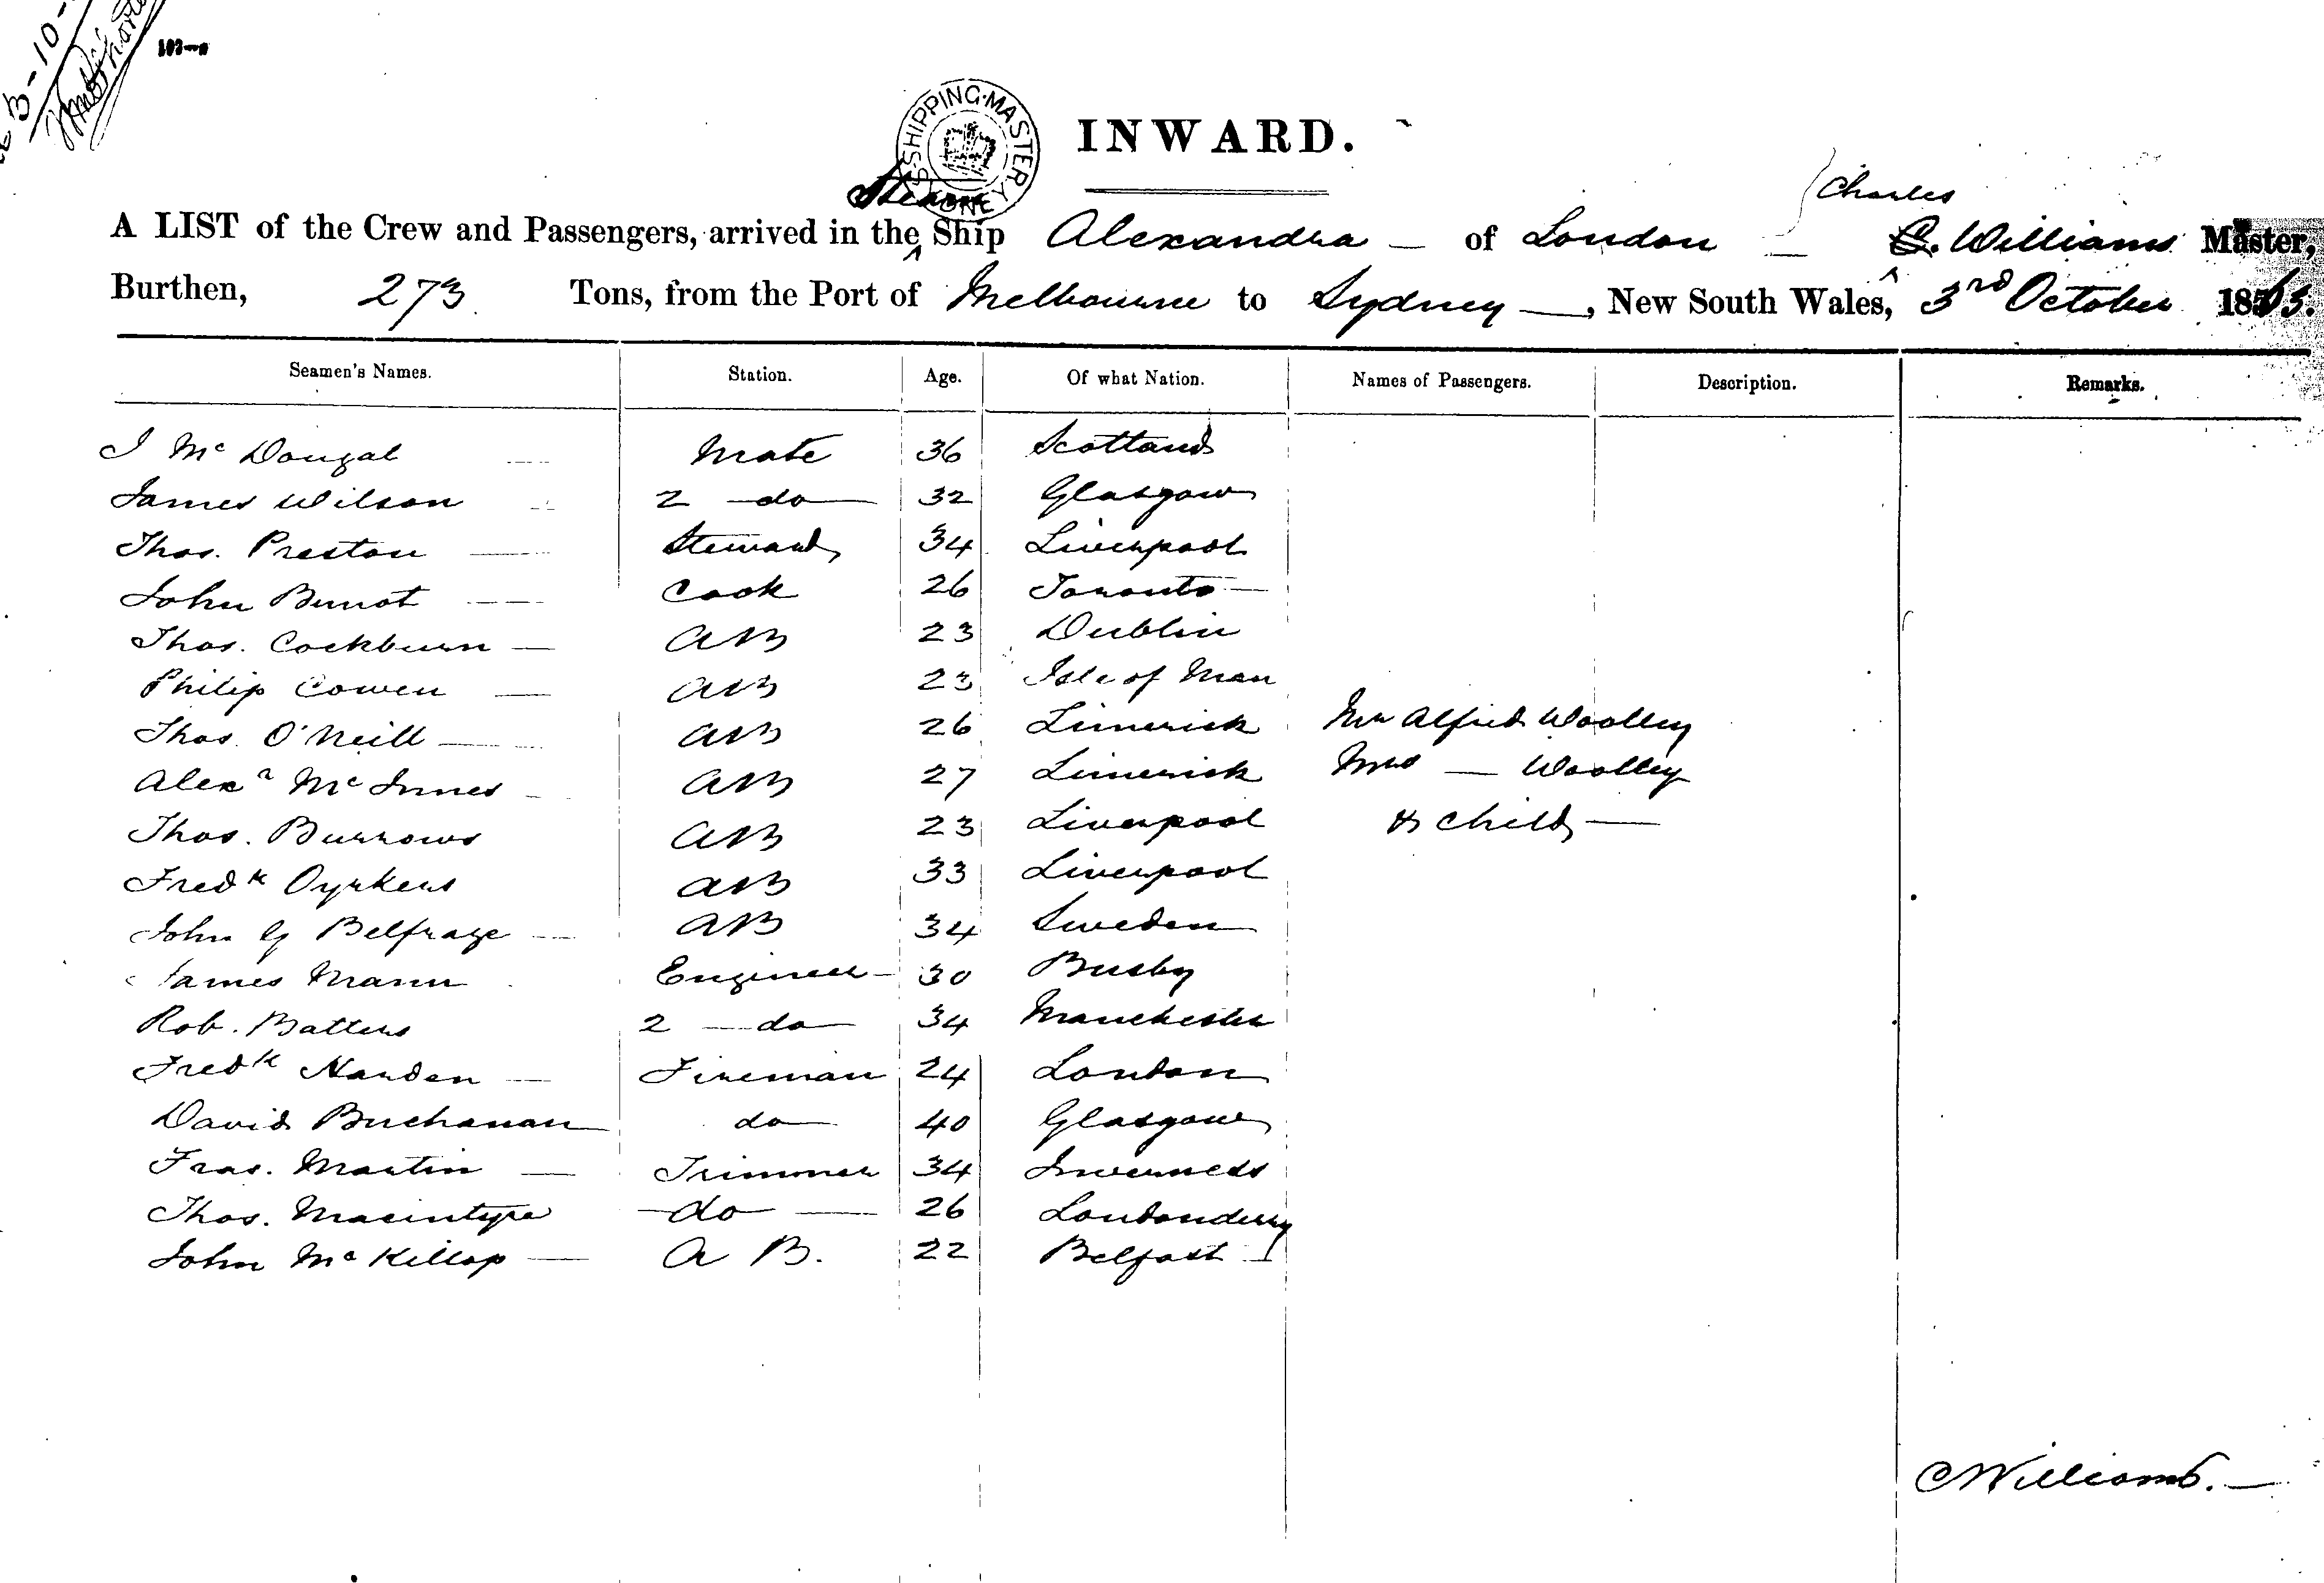 3-10-
103—a
SHIPPING·MASTER
INWARD.
Steam
Charles
A LIST of the Crew and Passengers, arrived in the ^ Ship Alexandra — of London — C. Williams Master,
Burthen, 273 Tons, from the Port of Melbourne to Sydney —, New South Wales, 3rd October 1863.
Seamen's Names. Station. Age. Of what Nation. Names of Passengers. Description. Remarks.
J McDougal — Mate 36 Scotland
James Wilson 2 — do — 32 Glasgow
Thos. Preston — Steward 34 Liverpool
John — Cook 26 Toronto —
Thos. Cockburn — AB 23 Dublin
Philip Cowen — AB 23 Isle of Man
Thos. O'Neill — AB 26 Limerick Mr Alfred Woolley
Alexr McInnes — AB 27 Limerick Mrs — Woolley
Thos. Burrows AB 23 Liverpool & Child —
Fredk AB 33 Liverpool
John G Belfrage — AB 34 Sweden
James Mann Engineer — 30 Busby
Rob. Batters 2 — do — 34 Manchester
Fredk Harden — Fireman 24 London
David Buchanan do — 40 Glasgow
Fras. Martin — Trimmer 34 Inverness
Thos. Macintyre — do — 26 Londonderry
John McKillop — A B. 22 Belfast
C Williams. —